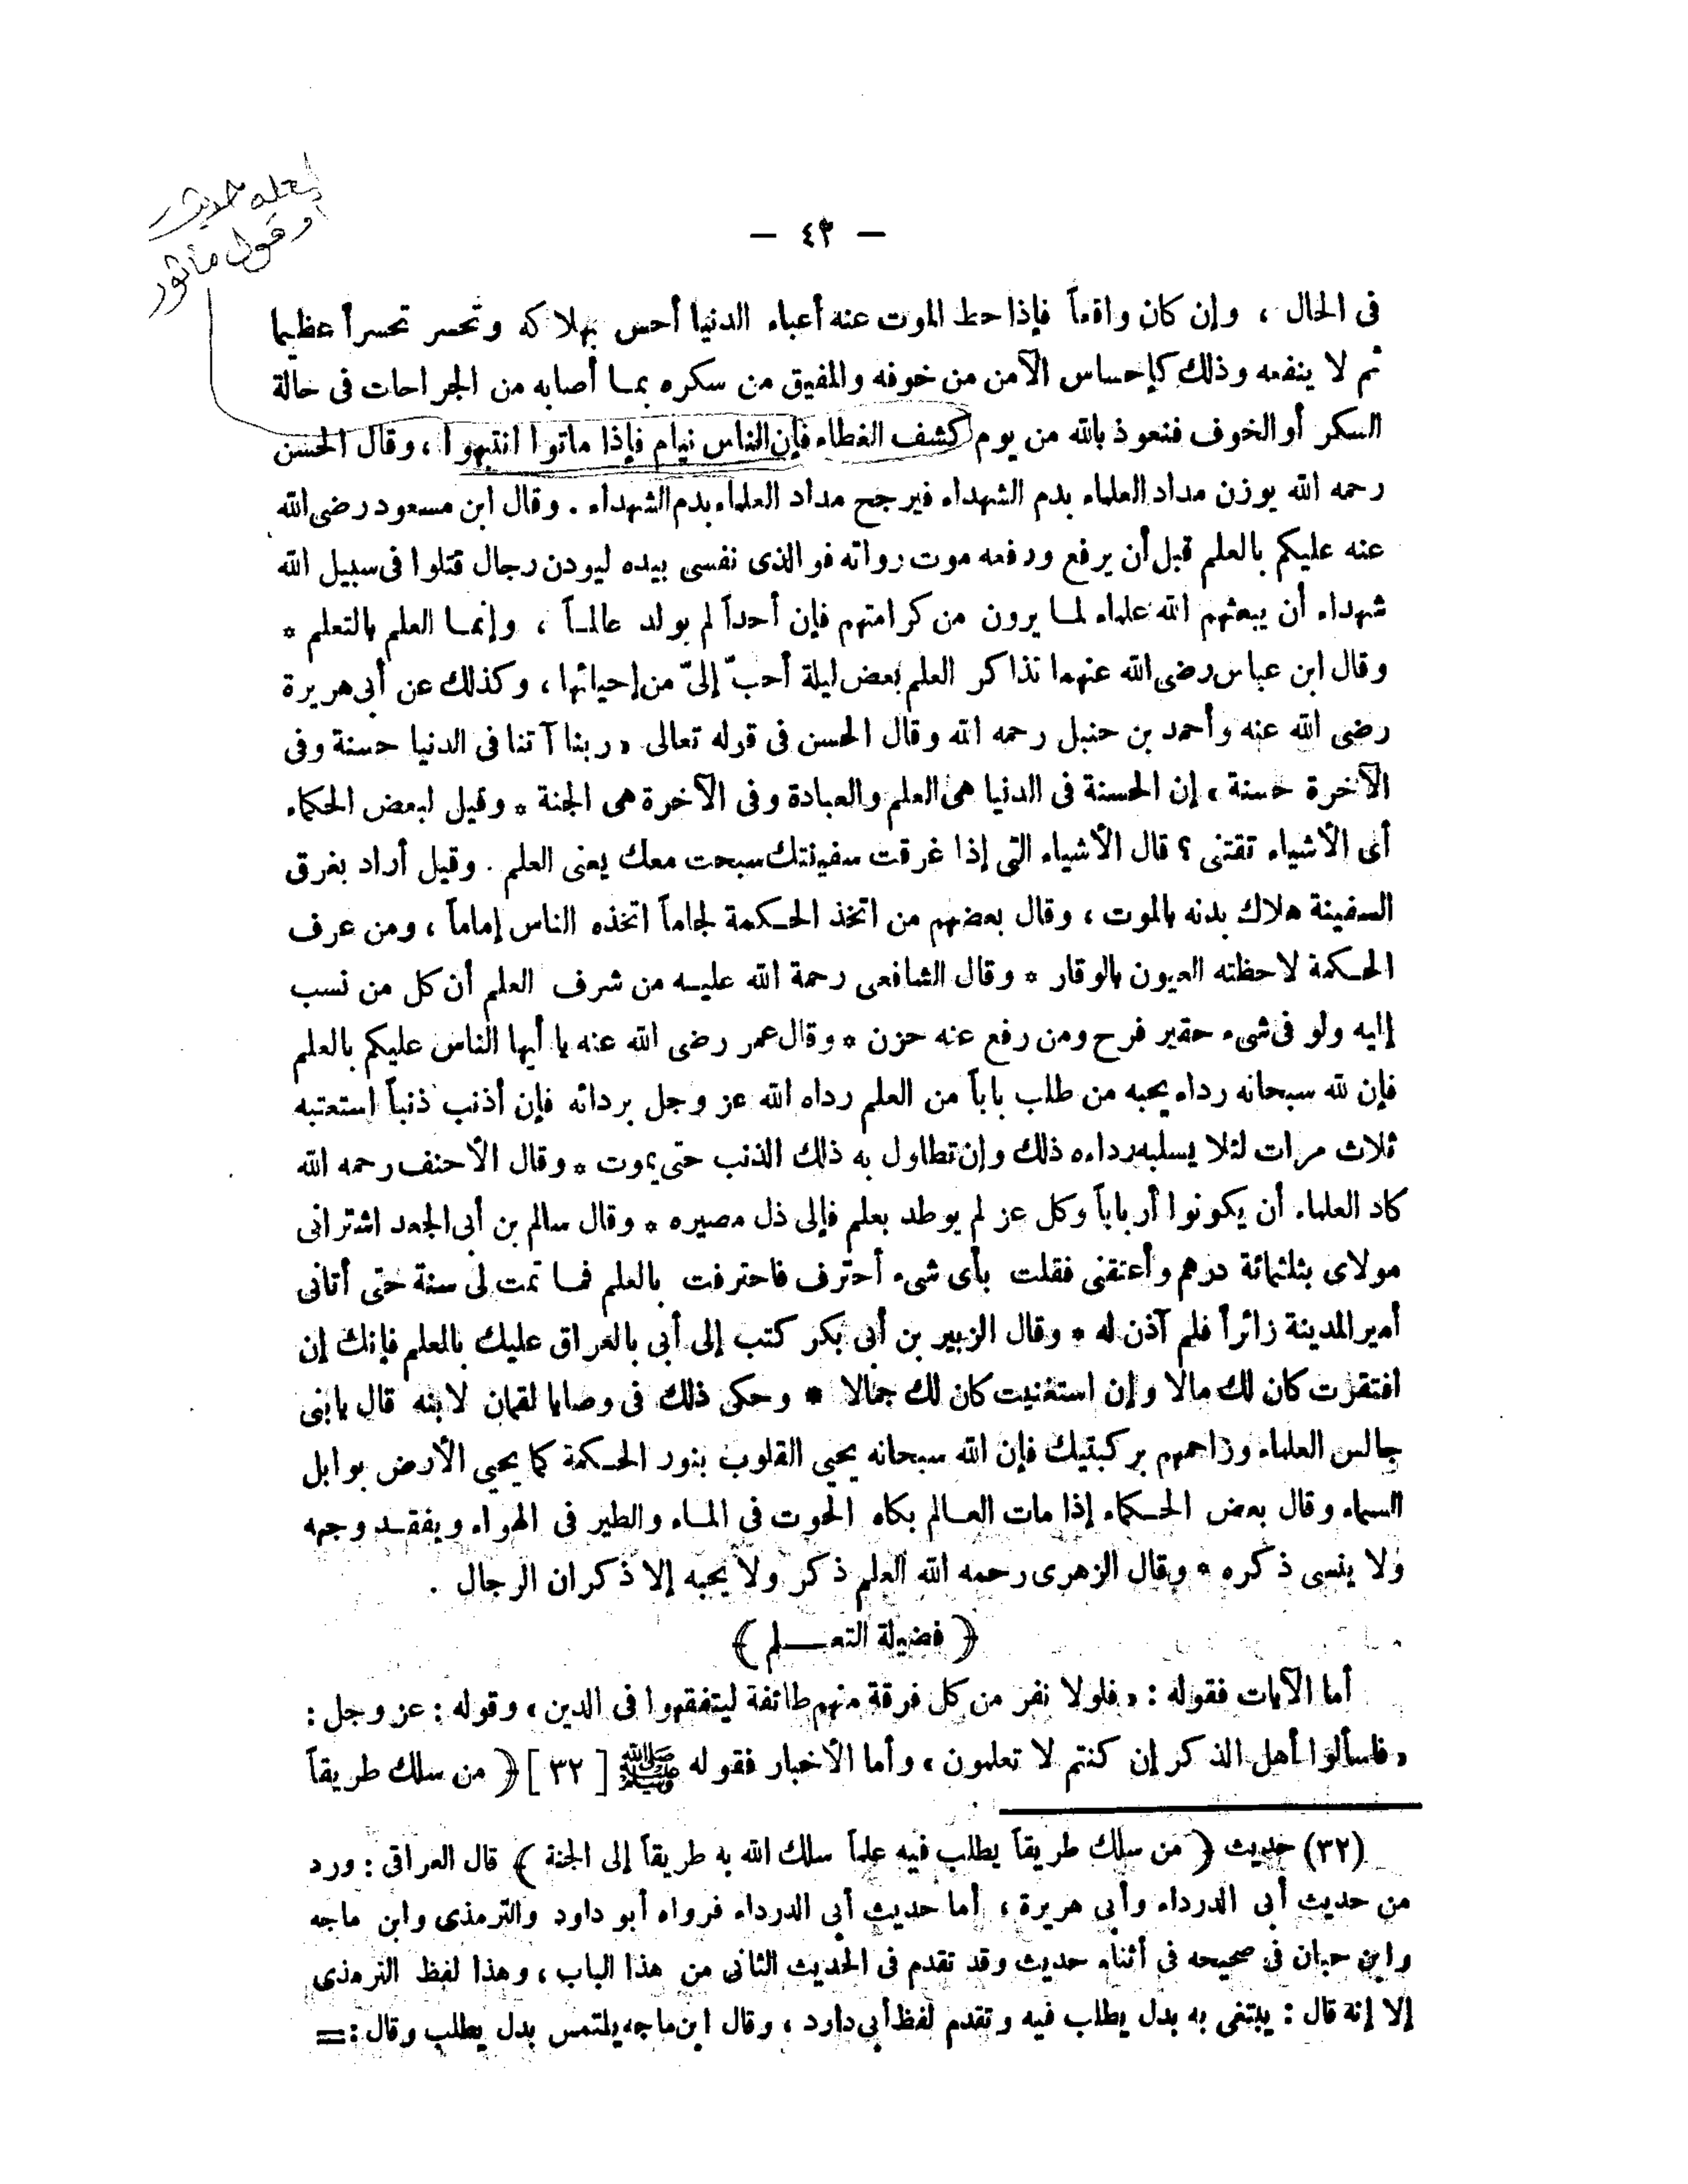 لعله حديث
أو قول مأثور
— ٤٣ —
فى الحال ، وإن كان واقعاً فإذا حط الموت عنه أعباء الدنيا أحس بهلاكه وتحسر تحسراً عظيما
ثم لا ينفعه وذلك كإحساس الآمن من خوفه والمفيق من سكره بمـا أصابه من الجراحات فى حالة
السكر أو الخوف فنعوذ بالله من يوم كشف الغطاء فإن الناس نيام فإذا ماتوا انتبهوا ، وقال الحسن
رحمه الله يوزن مداد العلماء بدم الشهداء فيرجح مداد العلماء بدم الشهداء . وقال ابن مسعود رضى الله
عنه عليكم بالعلم قبل أن يرفع ورفعه موت رواته فوالذى نفسى بيده ليودن رجال قتلوا فى سبيل الله
شهداء أن يبعثهم الله علماء لمـا يرون من كرامتهم فإن أحداً لم يولد عالمـاً ، وإنمـا العلم بالتعلم *
وقال ابن عباس رضى الله عنهما تذاكر العلم بعض ليلة أحبّ إلىّ من إحيائها ، وكذلك عن أبى هريرة
رضى الله عنه وأحمد بن حنبل رحمه الله وقال الحسن فى قوله تعالى « ربنا آتنا فى الدنيا حسنة وفى
الآخرة حسنة » إن الحسنة فى الدنيا هى العلم والعبادة وفى الآخرة هى الجنة * وقيل لبعض الحكماء
أى الأشياء تقتنى ؟ قال الأشياء التى إذا غرقت سفينتك سبحت معك يعنى العلم . وقيل أراد بغرق
السفينة هلاك بدنه بالموت ، وقال بعضهم من اتخذ الحـكمة لجاماً اتخذه الناس إماماً ، ومن عرف
الحـكمة لاحظته العيون بالوقار * وقال الشافعى رحمة الله عليـه من شرف العلم أن كل من نسب
إليه ولو فى شىء حقير فرح ومن رفع عنه حزن * وقال عمر رضى الله عنه يا أيها الناس عليكم بالعلم
فإن لله سبحانه رداء يحبه من طلب باباً من العلم رداه الله عز وجل بردائه فإن أذنب ذنباً استعتبه
ثلاث مرات لئلا يسلبه رداءه ذلك وإن تطاول به ذلك الذنب حتى يموت * وقال الأحنف رحمه الله
كاد العلماء أن يكونوا أرباباً وكل عز لم يوطد بعلم فإلى ذل مصيره * وقال سالم بن أبى الجعد اشترانى
مولاى بثلثمائة درهم وأعتقنى فقلت بأى شىء أحترف فاحترفت بالعلم فمـا تمت لى سنة حتى أتانى
أمير المدينة زائراً فلم آذن له * وقال الزبير بن أبى بكر كتب إلى أبى بالعراق عليك بالعلم فإنك إن
افتقرت كان لك مالا وإن استغنيت كان لك جمالا * وحكى ذلك فى وصايا لقمان لابنه قال يا بنى
جالس العلماء وزاحمهم بركبتيك فإن الله سبحانه يحيى القلوب بنور الحـكمة كما يحيى الأرض بوابل
السماء وقال بعض الحـكماء إذا مات العـالم بكاه الحوت فى المـاء والطير فى الهواء ويفقـد وجهه
ولا ينسى ذكره * وقال الزهرى رحمه الله العلم ذكر ولا يحبه إلا ذكران الرجال .
﴿ فضيلة التعـــلم ﴾
أما الآيات فقوله : « فلولا نفر من كل فرقة منهم طائفة ليتفقهوا فى الدين » وقوله : عز وجل :
« فاسألوا أهل الذكر إن كنتم لا تعلمون » وأما الأخبار فقوله ﷺ [ ٣٢ ] ﴿ من سلك طريقاً
(٣٢) حديث ﴿ من سلك طريقاً يطلب فيه علماً سلك الله به طريقاً إلى الجنة ﴾ قال العراقى : ورد
من حديث أبى الدرداء وأبى هريرة ، أما حديث أبى الدرداء فرواه أبو داود والترمذى وابن ماجه
وابن حبان فى صحيحه فى أثناء حديث وقد تقدم فى الحديث الثانى من هذا الباب ، وهذا لفظ الترمذى
إلا إنه قال : يبتغى به بدل يطلب فيه وتقدم لفظ أبى دارد ، وقال ابن ماجه يلتمس بدل يطلب وقال : =